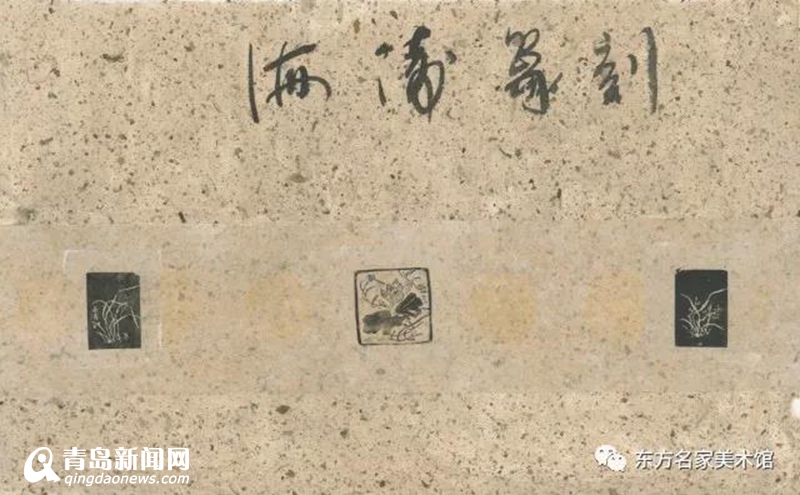 海 篆刻
青岛新闻网
qingdaonews.com
东方名家美术馆